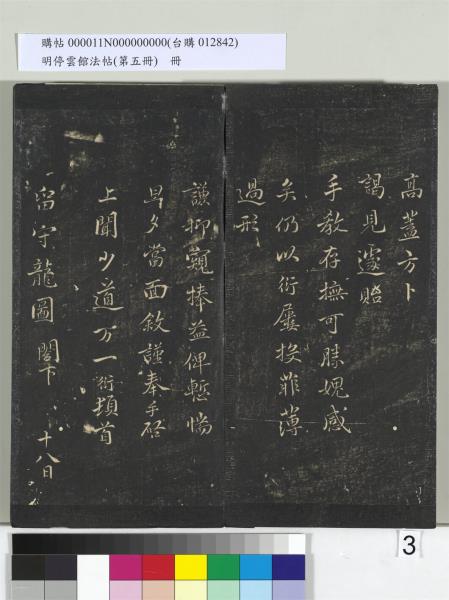 購帖 000011N000000000(台購 012842)
明停雲館法帖(第五冊) 冊
高蓋方卜
謁見遽賂
手教存撫可勝媿感
矣仍以衍屢投菲薄
過形
謙抑窺捧益俾慙惕
旦夕當面敘謹奉手啓
上聞少道万一衍頓首
留守龍圖閣下
十八日
3